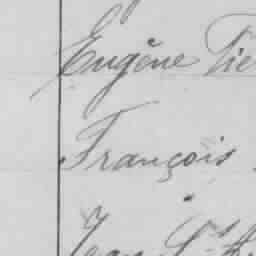 Eugène Pie
François
Jean